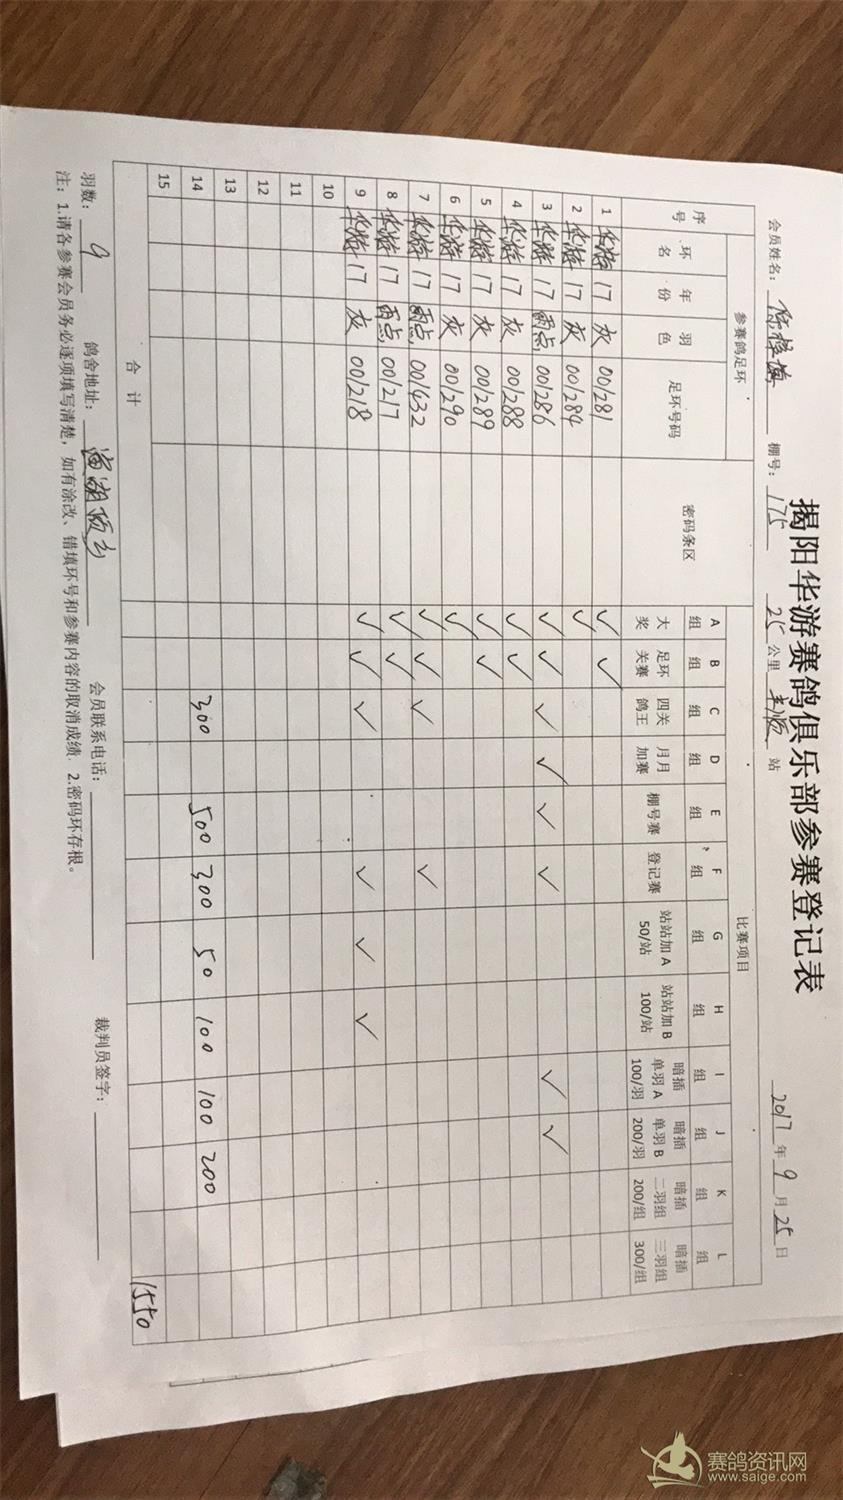 揭阳华游赛鸽俱乐部参赛登记表
会员姓名: 棚号: 175 25 公里 丰顺 站 2017 年 9 月 25 日
参赛鸽足环 比赛项目
序号 环名 年份 羽色 足环号码 密码条区 A组 B组 C组 D组 E组 F组 G组 H组 I组 J组 K组 L组
大奖 足环关赛 四关鸽王 月月加赛 棚号赛 登记赛 站站加A 50/站 站站加B 100/站 暗插单羽A 100/羽 暗插单羽B 200/羽 暗插二羽组 200/组 暗插三羽组 300/组
1 华游 17 灰 001281 ✓ ✓
2 华游 17 灰 001284 ✓
3 华游 17 雨点 001286 ✓ ✓ ✓ ✓ ✓ ✓ ✓ ✓
4 华游 17 灰 001288 ✓ ✓
5 华游 17 灰 001289 ✓ ✓
6 华游 17 灰 001290 ✓
7 华游 17 雨点 001432 ✓ ✓ ✓ ✓
8 华游 17 雨点 001217 ✓ ✓
9 华游 17 灰 001218 ✓ ✓ ✓ ✓ ✓ ✓
10
11
12
13
14 300 500 300 50 100 100 200
15
合计 1550
羽数: 9 鸽舍地址: 会员联系电话: 裁判员签字:
注: 1.请各参赛会员务必逐项填写清楚，如有涂改、错填环号和参赛内容的取消成绩 2.密码环存根。
赛鸽资讯网
www.saige.com